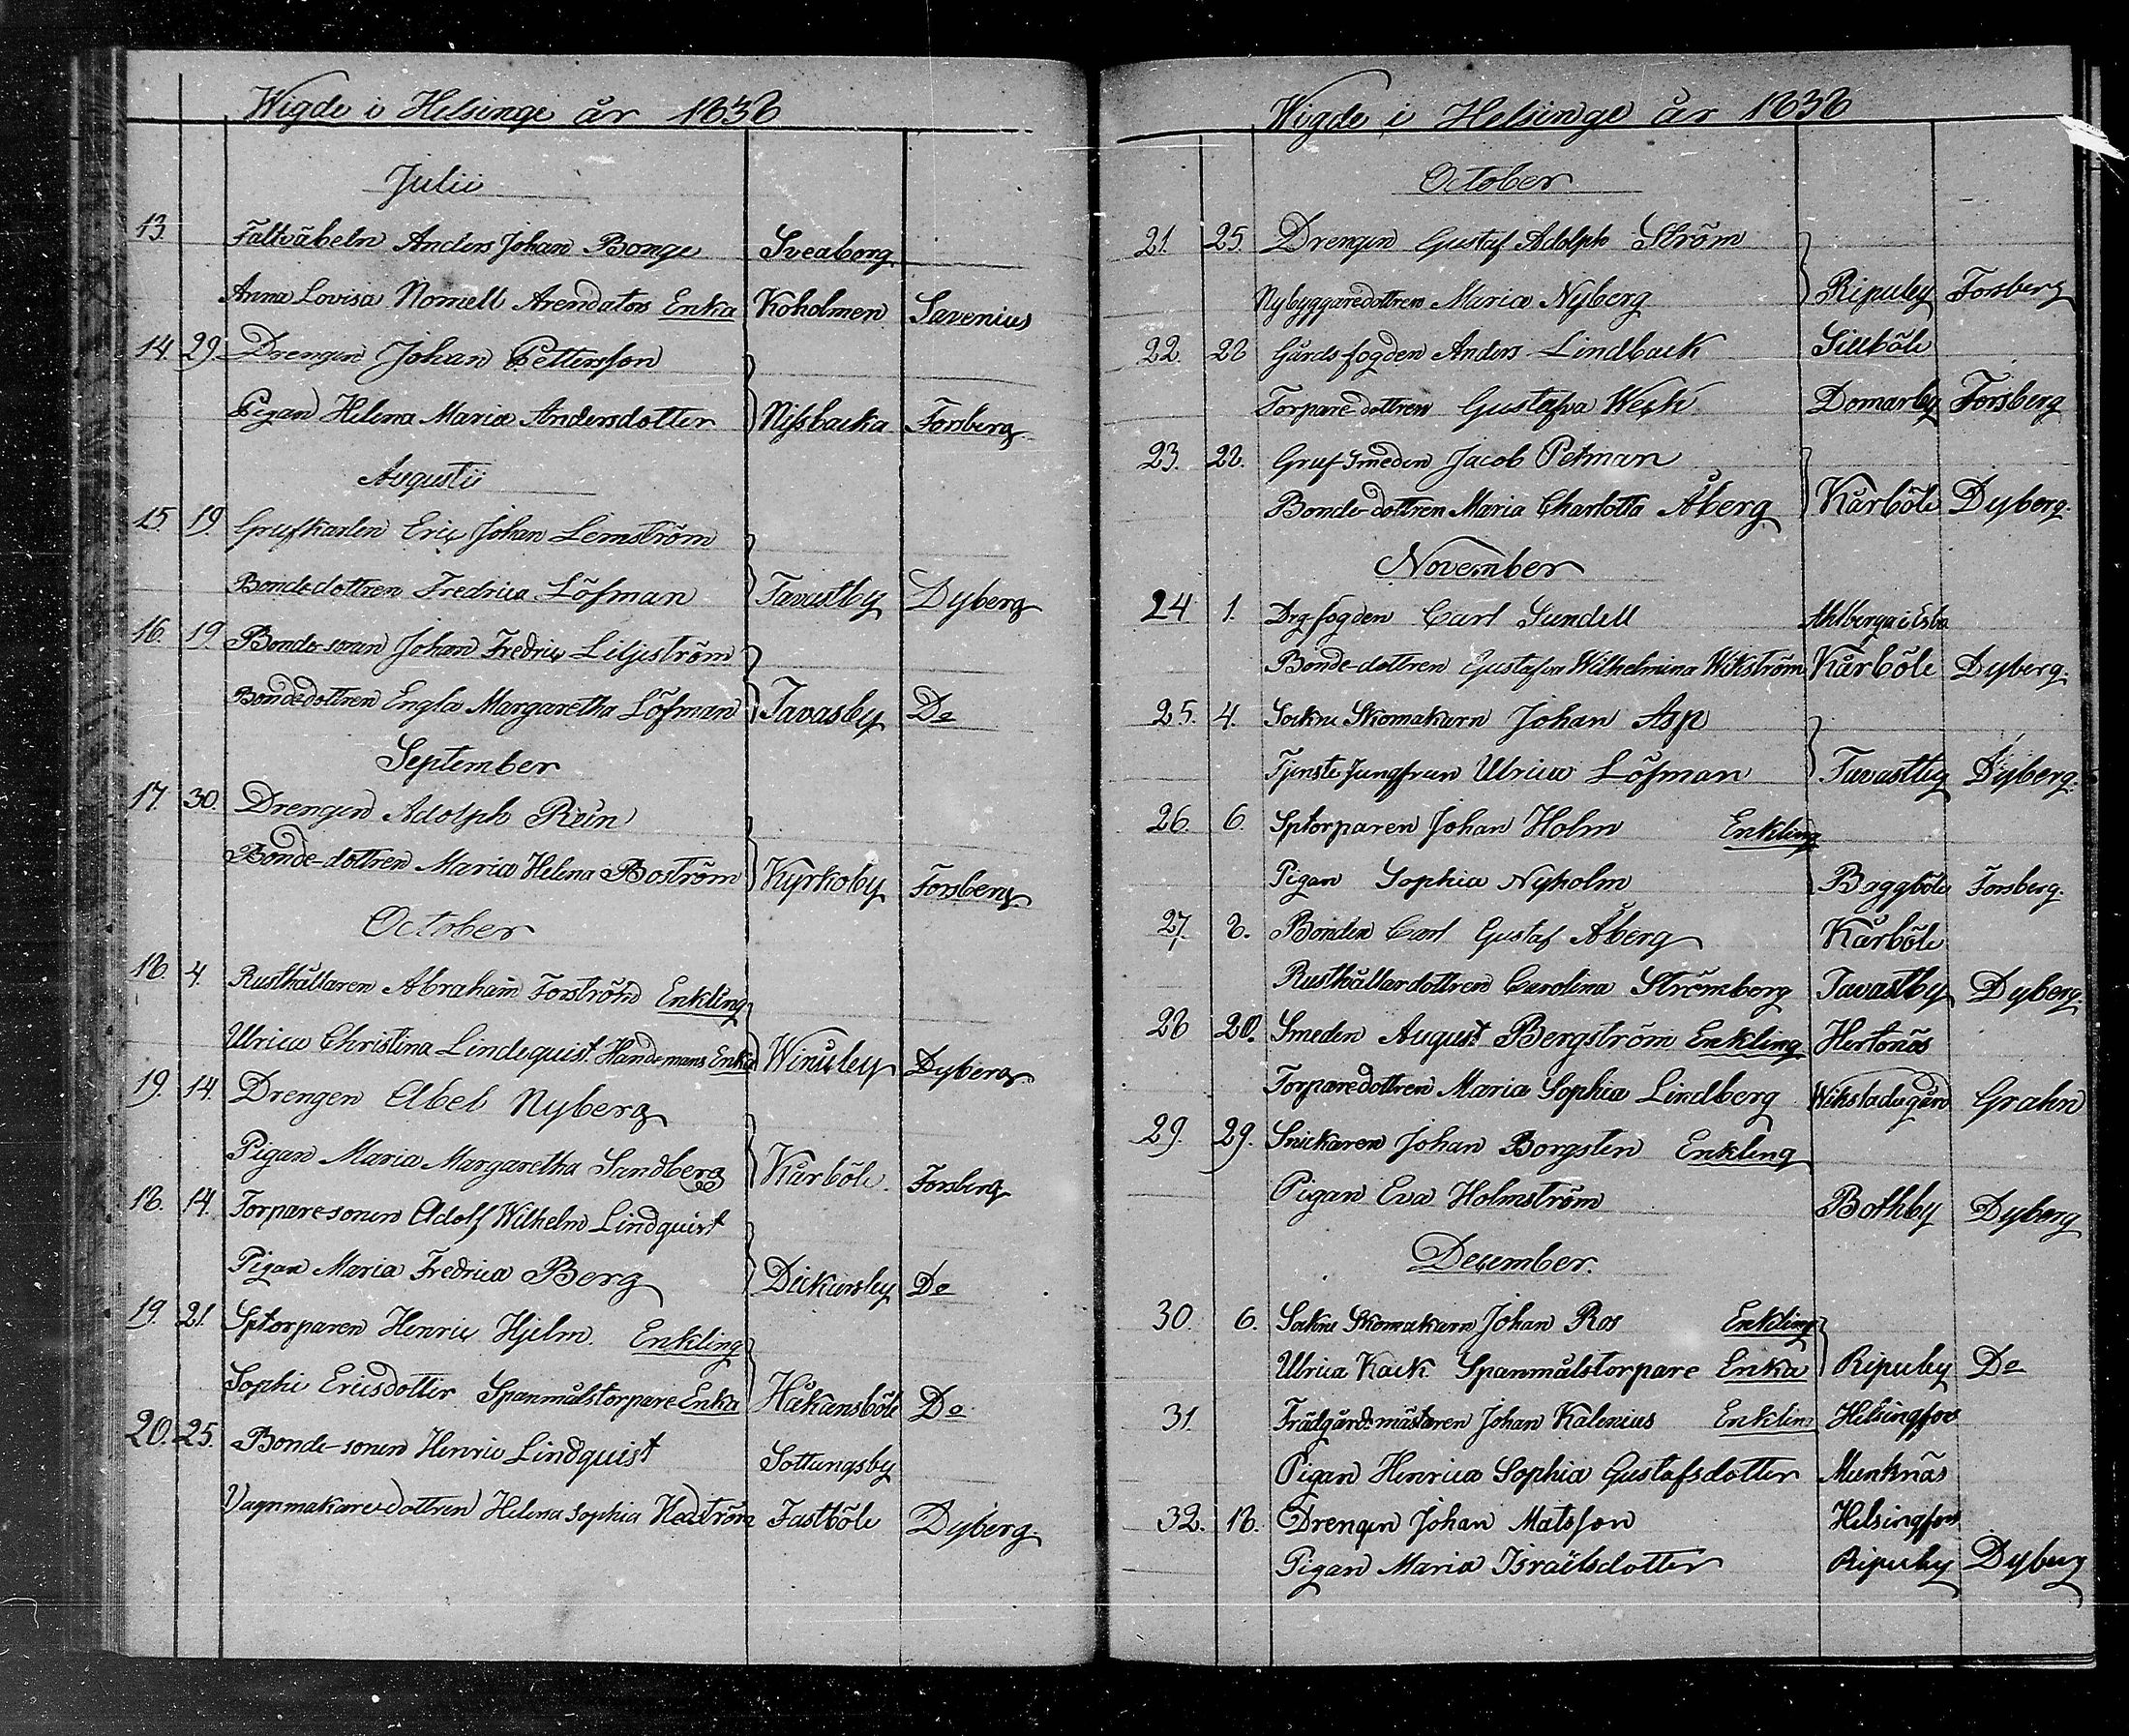 Wigde i Helsinge år 1838
Julii
13. Fältväbeln Anders Johan Bonge Sveaborg
Anna Lovisa Nomell Arendators Enka Koholmen Savenius
14. 29. Drengen Johan Pettersson
Pigan Helena Maria Andersdotter Nissbacka Forsberg
Augustii
15 19. Grufkarlen Eric Johan Lemström
Bondedottren Fredrica Löfman Tavastby Dyberg
16. 19. Bonde-sonen Johan Fredric Liljeström
Bondedottren Engla Margaretha Löfman Tavasby Do
September
17. 30. Drengen Adolph Rein
Bonde-dottren Maria Helena Boström Kyrkoby Forsberg
October
18. 4. Rusthållaren Abraham Forström Enkling
Ulrica Christina Lindequist Handemans Enka Winikby Dyberg
19. 14. Drengen Abel Nyberg
Pigan Maria Margaretha Sandberg Kårböle Forsberg
18. 14. Torpare-sonen Adolf Wilhelm Lindquist
Pigan Maria Fredrica Berg Dickursby Do
19. 21. Sptorparen Henric Hjelm. Enkling
Sophi Ericsdotter Spanmålstorpare Enka Håkansböle Do
20. 25. Bonde-sonen Henric Lindquist Sottungsby
Vagnmakare-dottren Helena Sophia Hedström Fastböle Dyberg
Wigde i Helsinge år 1838
October
21. 25. Drengen Gustaf Adolph Ström
Nybyggaredottren Maria Nyberg Ripuby Forsberg
22. 28 Gårdsfogden Anders Lindback Sillböle
Torpare-dottren Gustafva Weck Domarby Forsberg
23. 28. Grufsmeden Jacob Petman
Bonde-dottren Maria Charlotta Åberg Kårböle Dyberg.
November
24 1. Drg-fogden Carl Sundell Ahlberga i Esbo
Bonde-dottren Gustafva Wilhelmina Wikström Kårböle Dyberg.
25. 4. Sockne Skomakarn Johan Asp
Tjenste Jungfrun Ulrica Löfman Tavastby Dyberg.
26. 6. Sptorparen Johan Holm Enkling
Pigan Sophia Nyholm Baggböle Forsberg.
27. 8. Bonden Carl Gustaf Åberg Kårböle
Rusthållardottren Carolina Strömberg Tavastby Dyberg.
28 20. Smeden August Bergström Enkling Hertonäs
Torparedottren Maria Sophia Lindberg Wikstadsgård Grahn
29. 29. Snickaren Johan Borgsten Enkling
Pigan Eva Holmström Bothby Dyberg
December.
30. 6. Sockne Skomakarn Johan Ros Enkling
Ulrica Kack Spanmålstorpare Enka Ripuby Do
31. Trädgårdsmästaren Johan Kalenius Enkling Helsingfors
Pigan Henrica Sophia Gustafsdotter Munknäs
32. 18. Drengen Johan Matsson Helsingfors
Pigan Maria Israëlsdotter Ripuby Dyberg